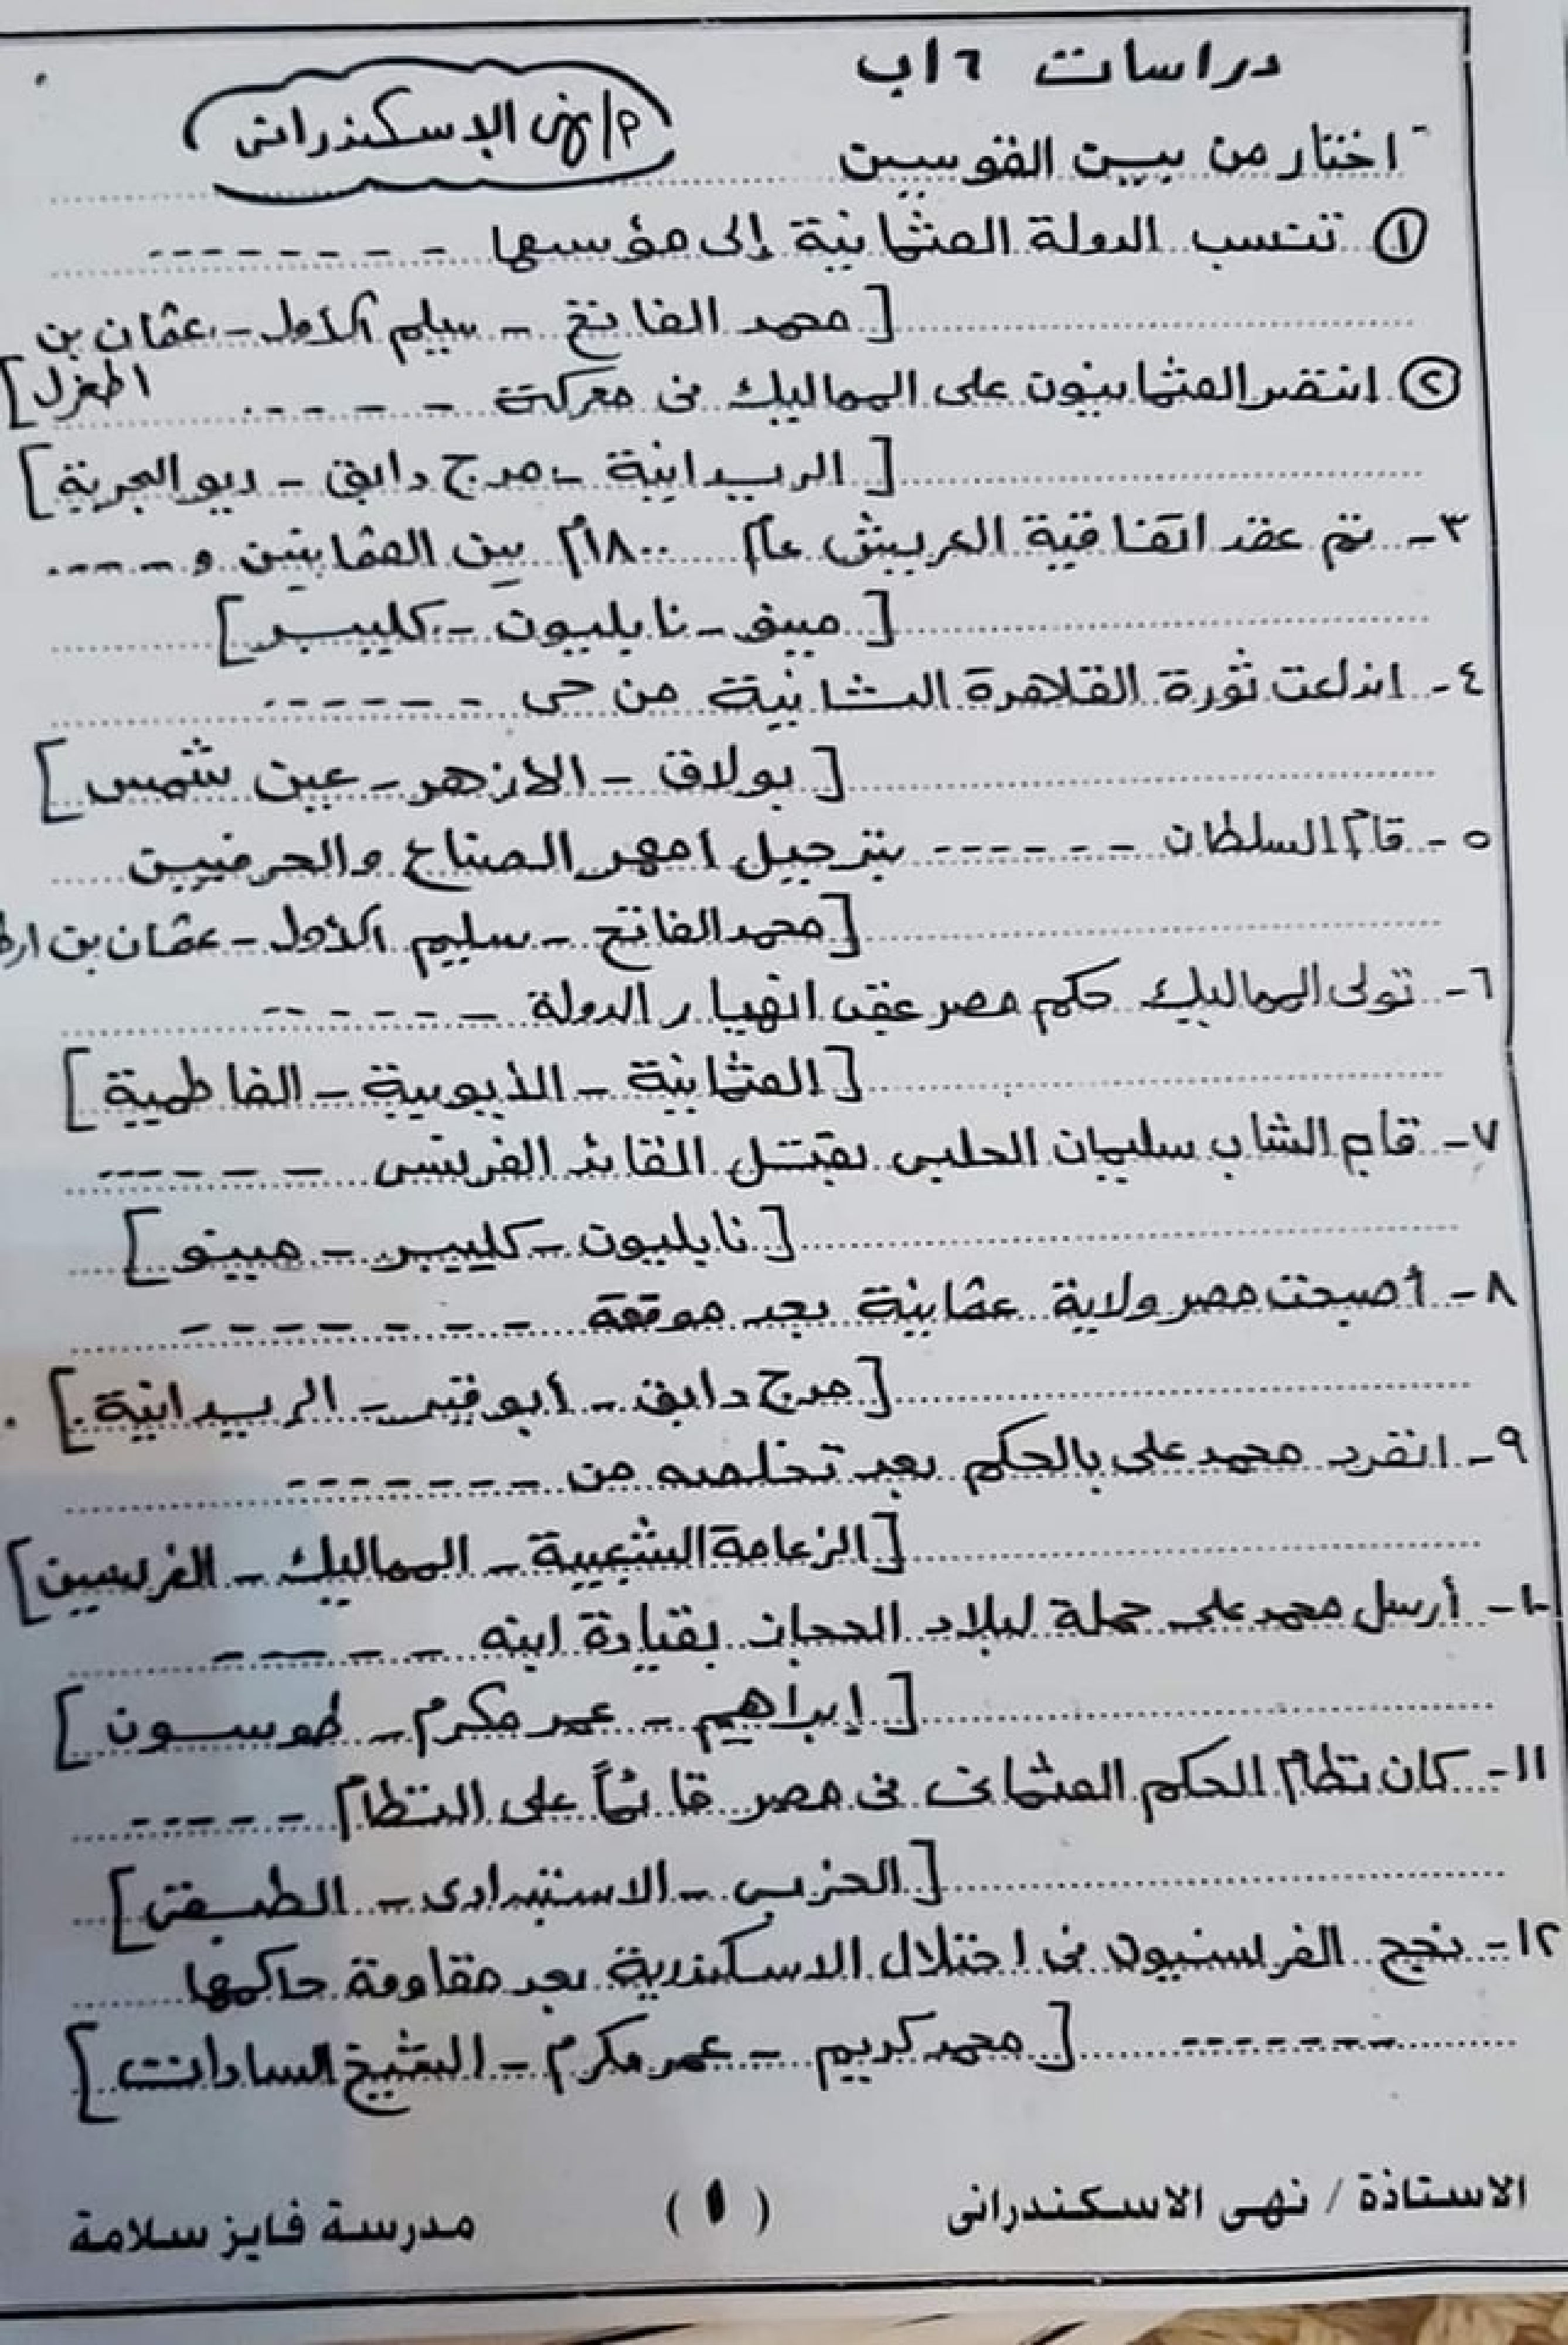 دراسات ٦ اب
م/ نهى الإسكندرانى
- اختار من بين القوسين
① تنسب الدولة العثمانية إلى مؤسسها - - - - - - -
[ محمد الفاتح - سليم الأول - عثمان بن
② انتصر العثمانيون على المماليك فى معركة - - - - -
[ الريدانية - مرج دابق - ديو البحرية ]
٣- تم عقد اتفاقية العريش عام ١٨٠٠م بين العثمانين و - - - -
[ مينو - نابليون - كليبر ]
٤- اندلعت ثورة القاهرة الثانية من حى - - - - - -
[ بولاق - الازهر - عين شمس ]
٥- قام السلطان - - - - - - بترحيل امهر الصناع والحرفيين
[ محمد الفاتح - سليم الأول - عثمان بن
٦- تولى المماليك حكم مصر عقب انهيار الدولة - - - - - -
[ العثمانية - الأيوبية - الفاطمية ]
٧- قام الشاب سليمان الحلبى بقتل القائد الفرنسى - - - - - -
[ نابليون - كليبر - مينو ]
٨- أصبحت مصر ولاية عثمانية بعد موقعة - - - - - - -
[ مرج دابق - أبو قير - الريدانية ]
٩- انفرد محمد على بالحكم بعد تخلصه من - - - - - - -
[ الزعامة الشعبية - المماليك - الفرنسين ]
١٠- أرسل محمد على حملة لبلاد الحجاز بقيادة ابنه - - - - -
[ إبراهيم - عمر مكرم - طوسون ]
١١- كان نظام الحكم العثمانى فى مصر قائماً على النظام - - - - -
[ الحزبى - الاستبدادى - الطبقى ]
١٢- نجح الفرنسيون فى احتلال الاسكندرية بعد مقاومة حاكمها
- - - - - - - [ محمد كريم - عمر مكرم - الشيخ السادات ]
الاستاذة / نهى الاسكندرانى (١) مدرسة فايز سلامة